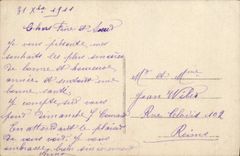 31 Xbre 1911
Chers
Je vous présente mes
souhaits les plus sincères
de bonne et heureuse
année et surtout une
bonne santé.
Je compte sur vous
pour Dimanche 7
En attendant le plaisir
de vous voir Je vous
embrasse bien
Mr et Mme
Jean
Rue 102
Reims